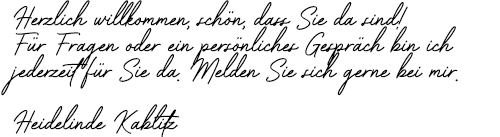 Herzlich willkommen, schön, dass Sie da sind!
Für Fragen oder ein persönliches Gespräch bin ich
jederzeit für Sie da. Melden Sie sich gerne bei mir.
Heidelinde Kablitz